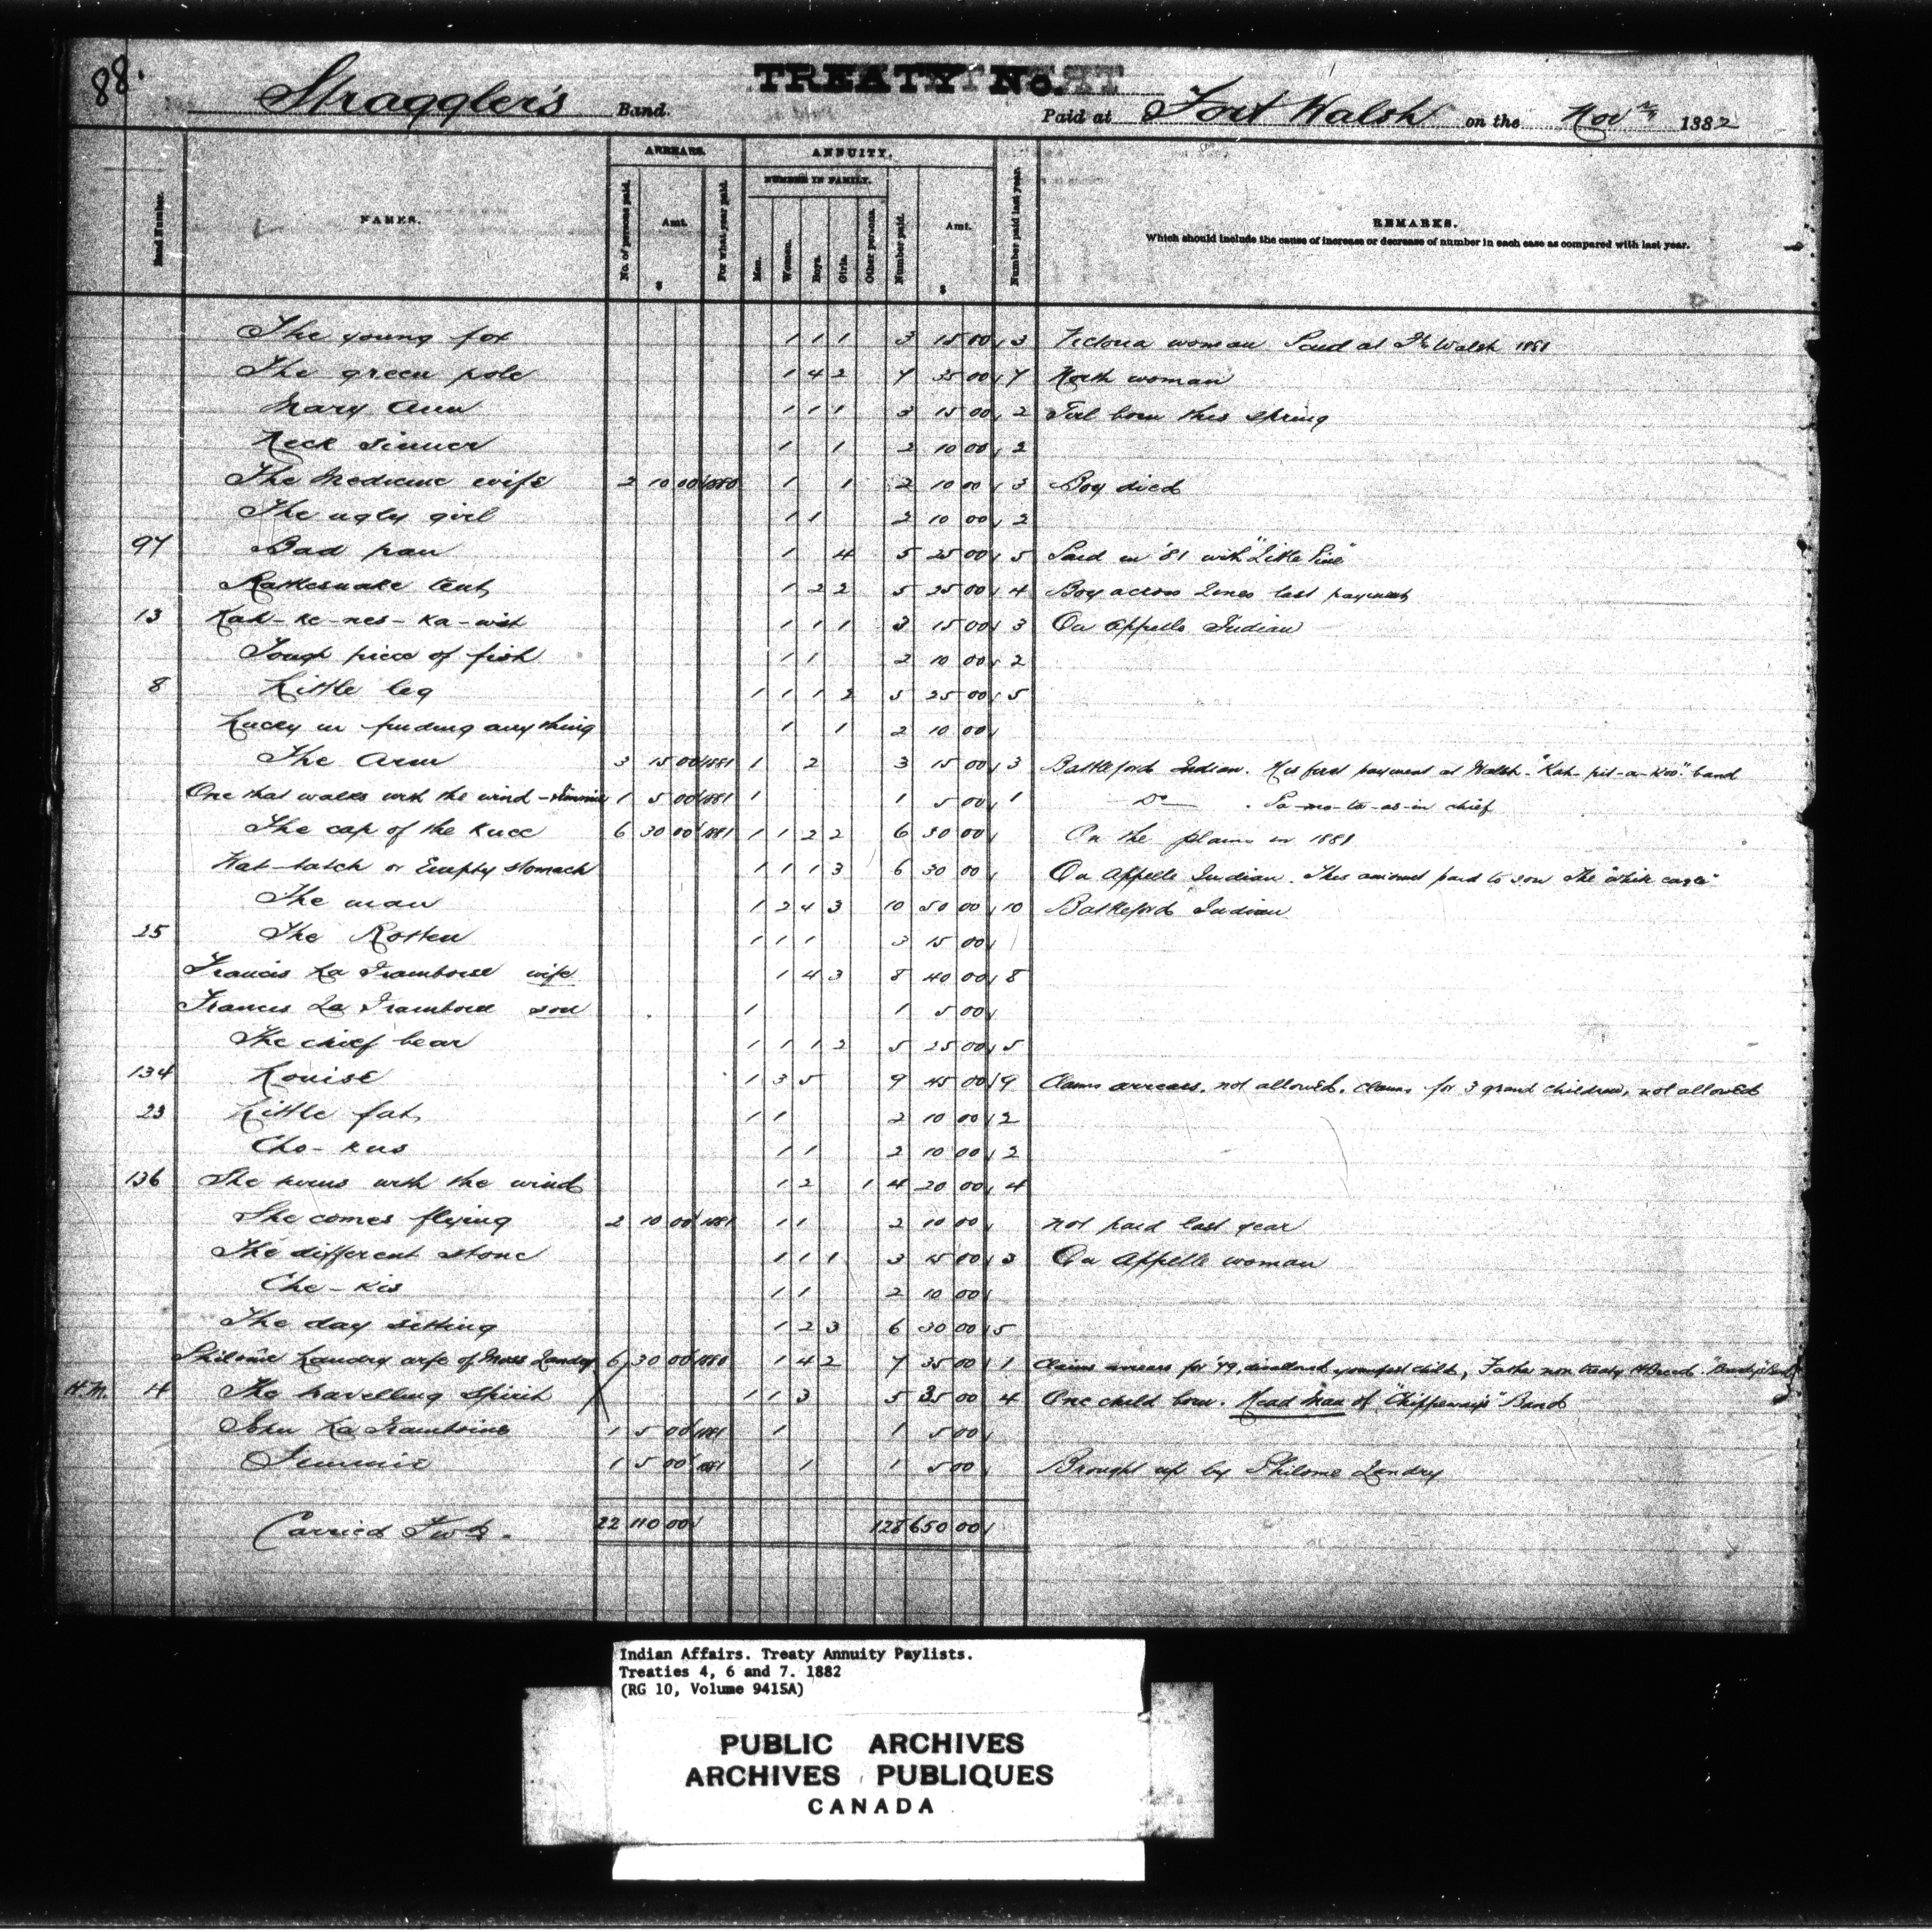 88.
TREATY No.
Straggler's Band. Paid at Fort Walsh on the Nov 1882
ARREARS. ANNUITY.
NUMBER IN FAMILY.
Band Number. NAMES. No. of persons paid. Amt. For what year paid. Men. Women. Boys. Girls. Other persons. Number paid. Amt. Number paid last year. REMARKS.
Which should include the cause of increase or decrease of number in each case as compared with last year.
$ $
The young fox 1 1 1 3 15 00 3 Victoria woman Paid at Ft. Walsh 1881
The green pole 1 4 2 7 35 00 7 North woman
Mary Ann 1 1 1 3 15 00 2 Girl born this spring
Neck sinner 1 1 2 10 00 2
The Medicine wife 2 10 00 1880 1 1 2 10 00 3 Boy died
The ugly girl 1 1 2 10 00 2
97 Bad pan 1 4 5 25 00 5 Paid in '81 with "Little Pine"
Rattlesnake tent 1 2 2 5 25 00 4 Boy across Lines last payment
13 Kah-ke-nes-ka-wish 1 1 1 3 15 00 3 Qu Appelle Indian
Tough piece of fish 1 1 2 10 00 2
8 Little leg 1 1 1 2 5 25 00 5
Lucky in finding anything 1 1 2 10 00
The Arm 3 15 00 1881 1 2 3 15 00 3 Battleford Indian. His first payment at Walsh - "Kah-pit-a-koo" band
One that walks with the wind - 1 5 00 1881 1 1 5 00 1 Do . Pa-mo-ta-as-in chief
The cap of the knee 6 30 00 1881 1 1 2 2 6 30 00 On the plains in 1881
Wat-tatch or Empty stomach 1 1 1 3 6 30 00 Qu Appelle Indian. This amount paid to son The "White eagle"
The man 1 2 4 3 10 50 00 10 Battleford Indian
25 The Rotten 1 1 1 3 15 00
Francis La Framboise wife 1 4 3 8 40 00 8
Francis La Framboise son 1 1 5 00
The chief bear 1 1 1 2 5 25 00 5
134 Louise 1 3 5 9 45 00 9 Claims arrears, not allowed. Claims for 3 grand children, not allowed
23 Little fat 1 1 2 10 00 2
Cho-kus 1 1 2 10 00 2
136 She turns with the wind 1 2 1 4 20 00 4
She comes flying 2 10 00 1881 1 1 2 10 00 not paid last year
The different stone 1 1 1 3 15 00 3 Qu Appelle woman
Che-kis 1 1 2 10 00
The day sitting 1 2 3 6 30 00 5
Philome Landry wife of Moses Landry 6 30 00 1880 1 4 2 7 35 00 1 Claims arrears for '79, disallowed youngest child, Father non treaty H Breed.
H.M. 14 The travelling spirit 1 1 3 5 35 00 4 One child born. Head Man of "Chippeway's" Band
John La Framboise 1 5 00 1881 1 1 5 00
Jimmie 1 5 00 1881 1 1 5 00 Brought up by Philome Landry
Carried Fwd. 22 110 00 128 650 00
Indian Affairs. Treaty Annuity Paylists.
Treaties 4, 6 and 7. 1882
(RG 10, Volume 9415A)
PUBLIC ARCHIVES
ARCHIVES PUBLIQUES
CANADA